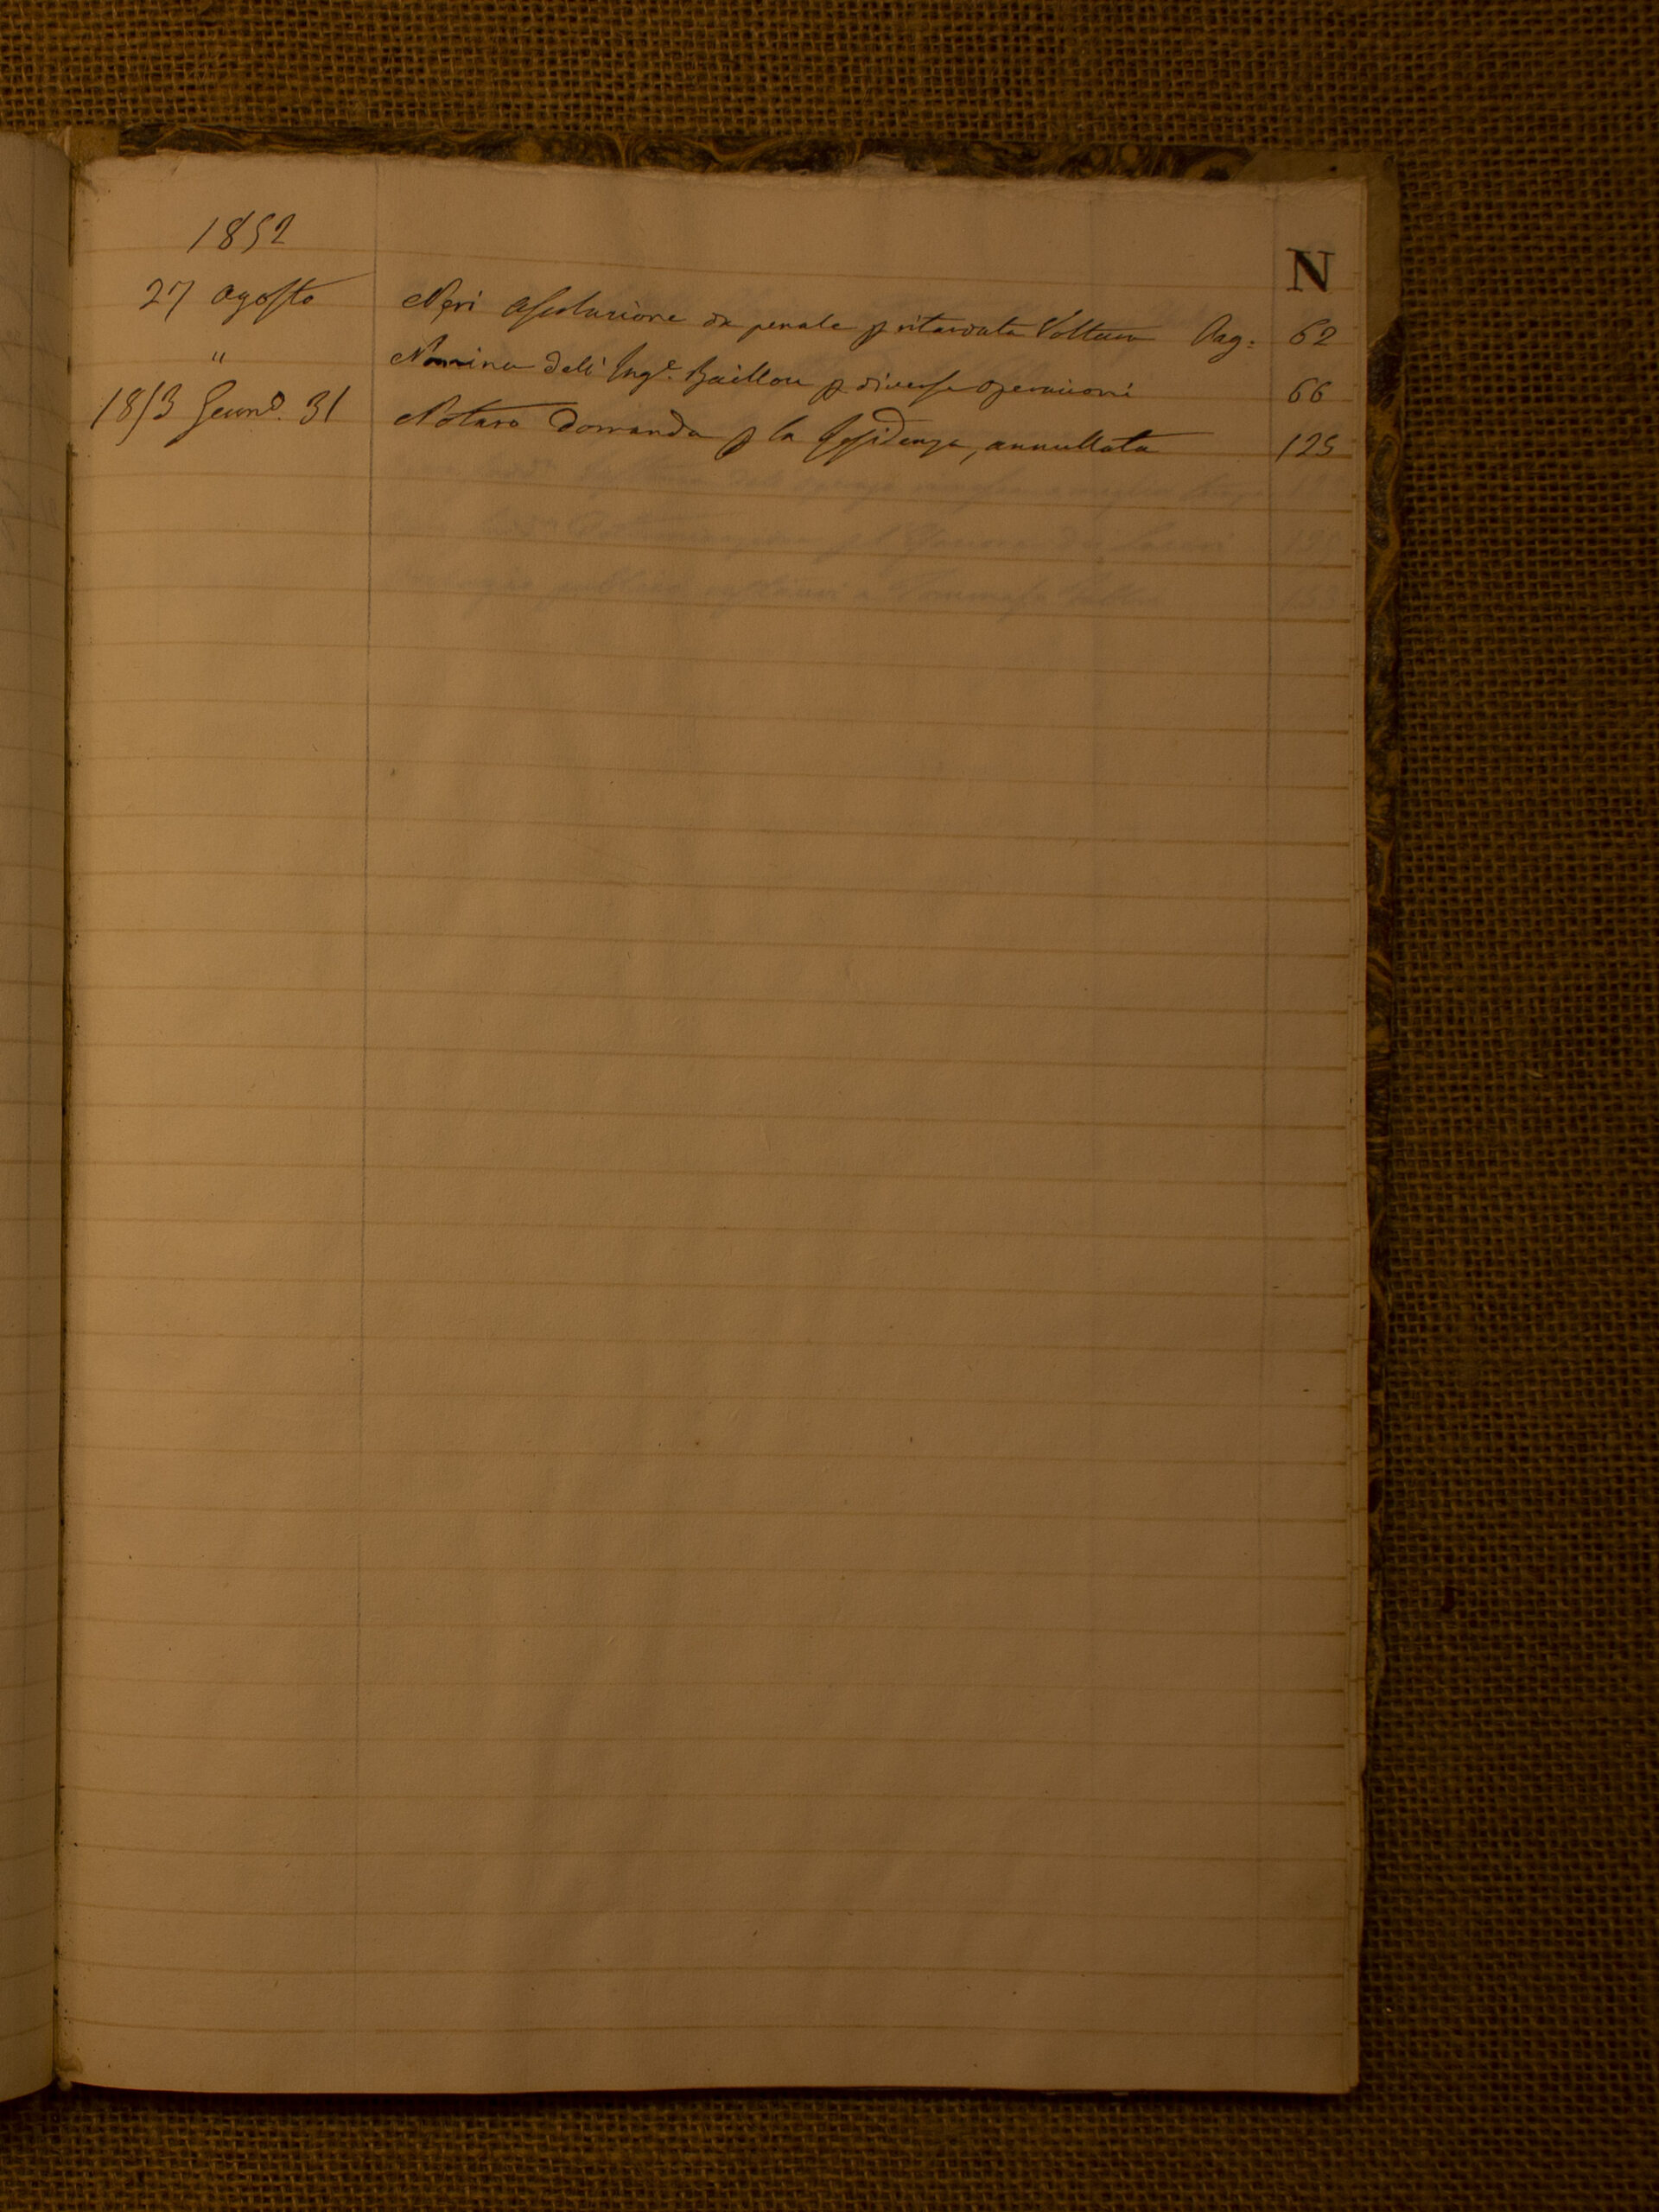 1852
N
27 Agosto Neri Assoluzione da penale p ritardata Voltura Pag: 62
" Nomina deli Ingᵉ. Baillou p diverse operazioni 66
1853 Gennº. 31 Notaro Domanda p la Residenza, annullata 125